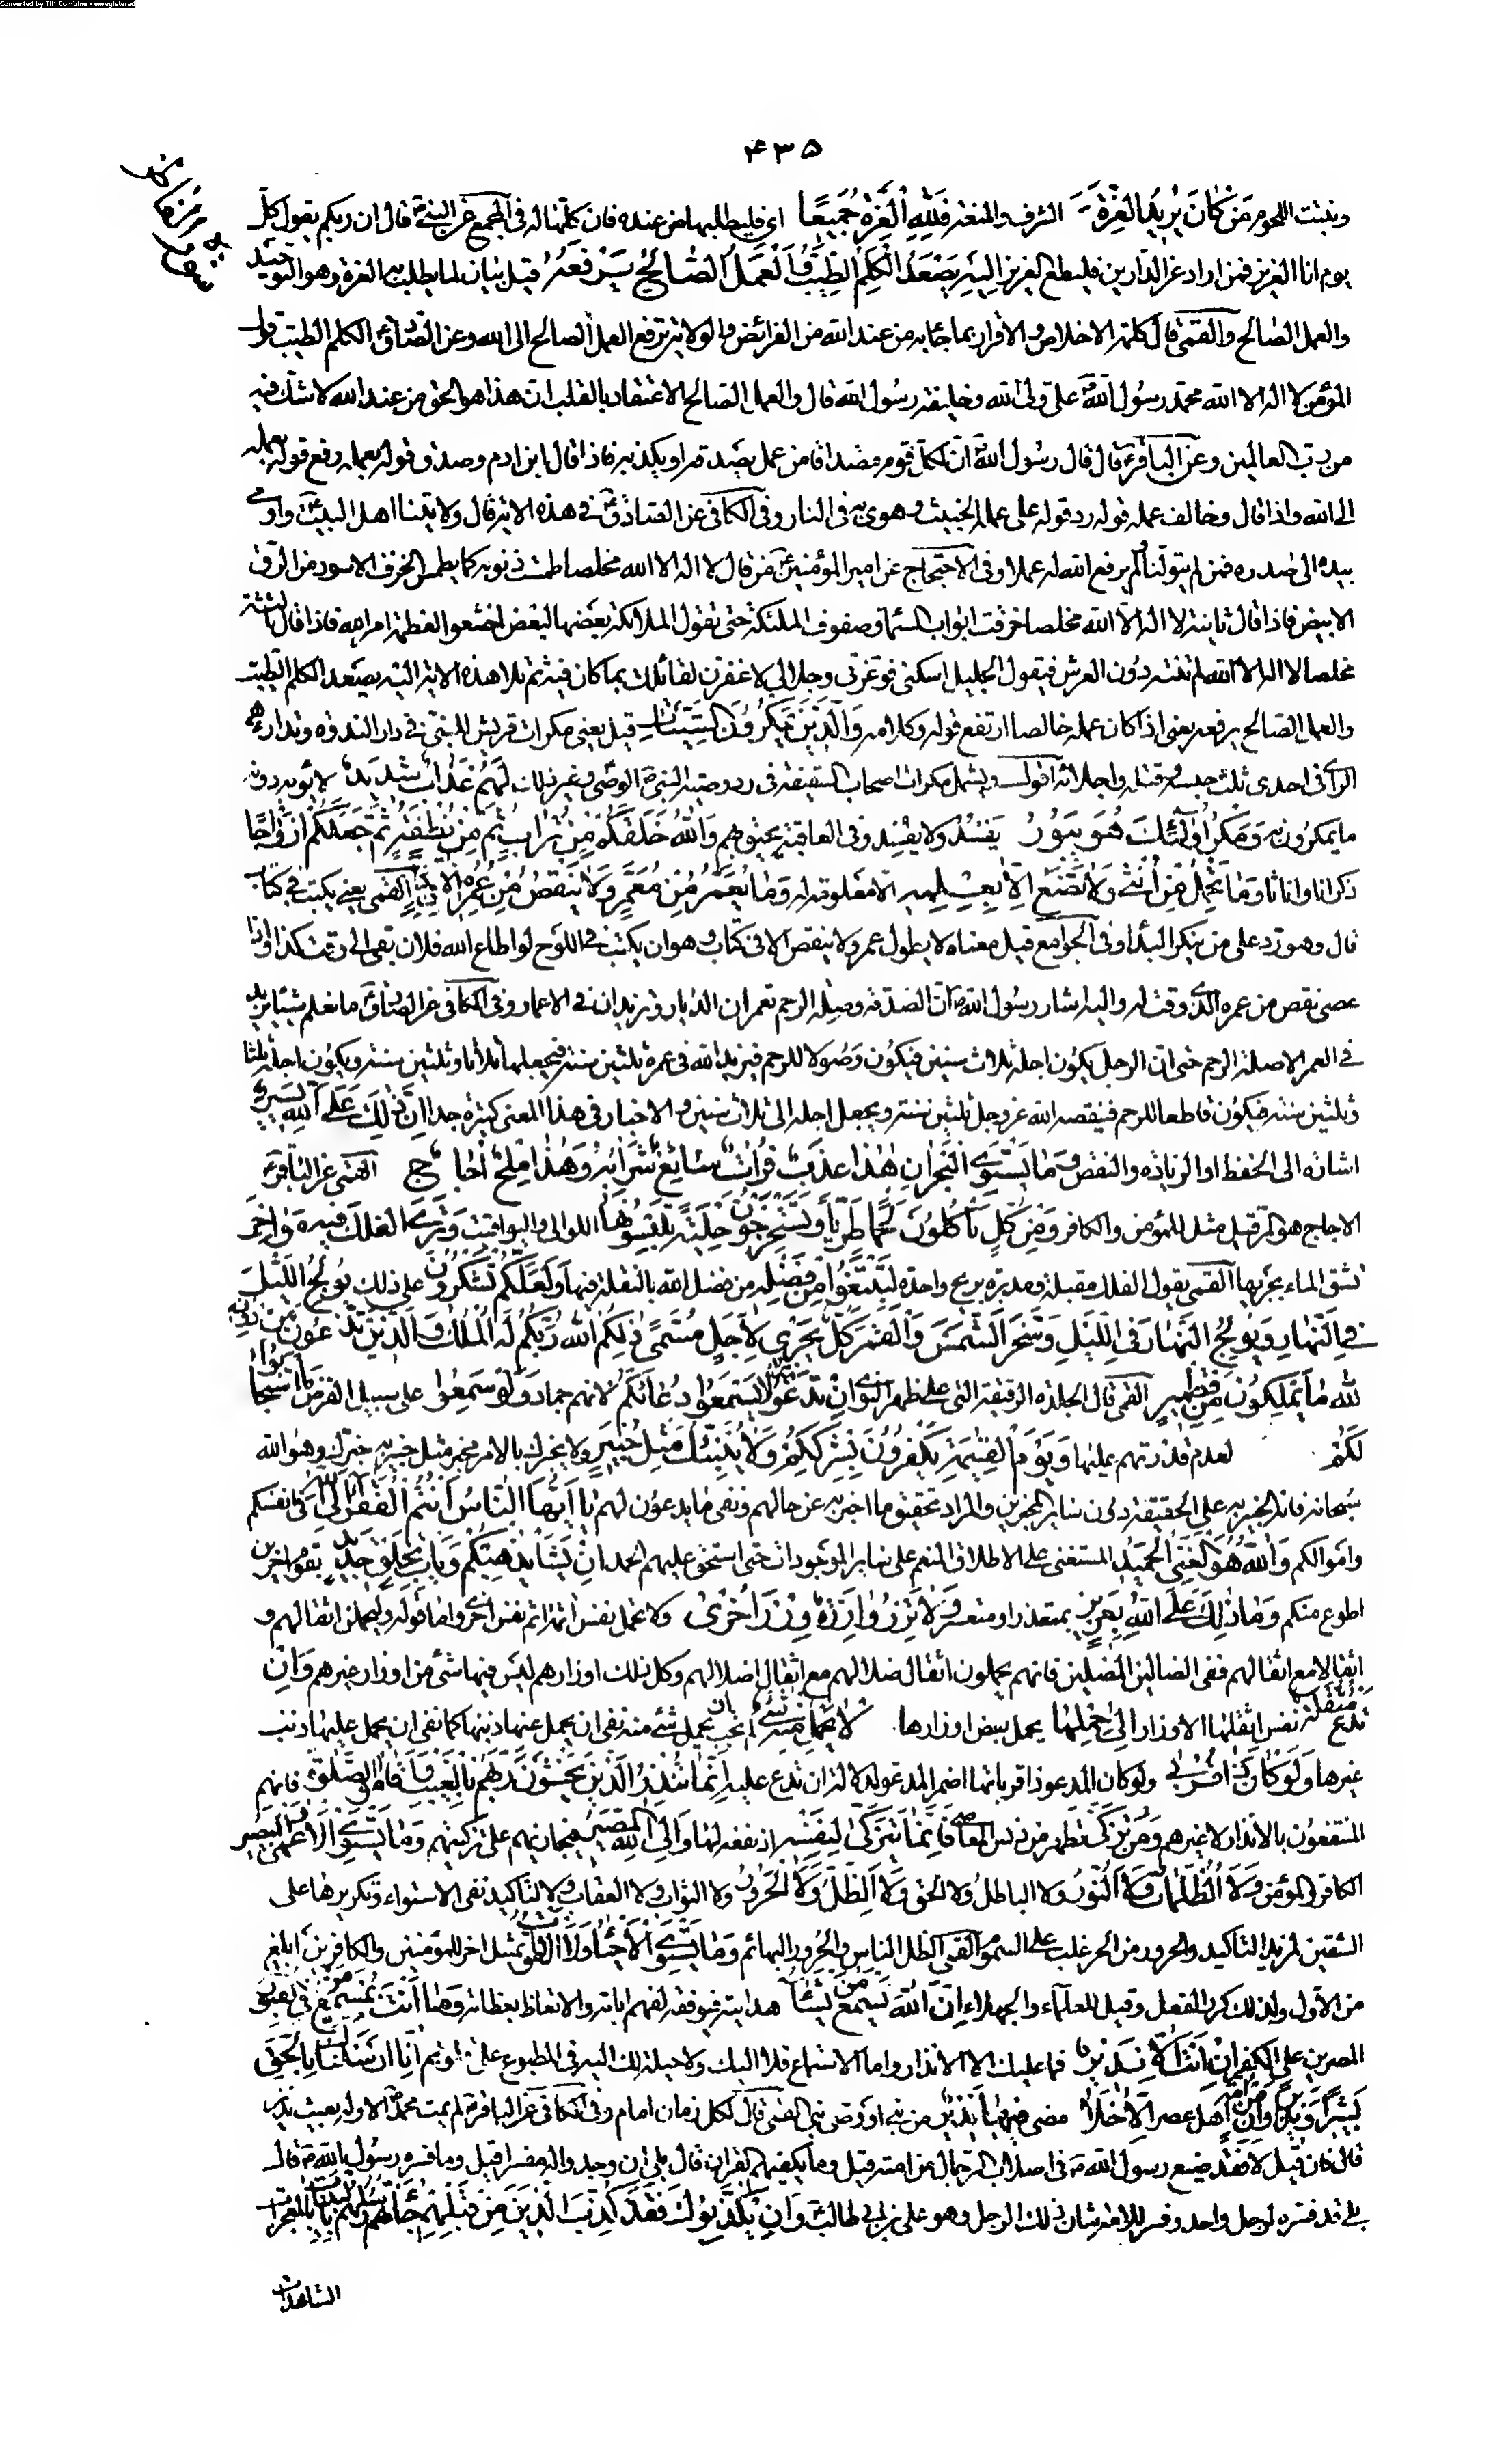 Converted by Tiff Combine - unregistered
۴۳۵
وينبت اللحوم مَن كانَ يُريدُ العِزَّةَ الشرف والمنعة فَلِلّهِ الْعِزَّةُ جَميعًا اى فليطلبها من عنده فان كلّها له فى المجمع عن النبىّ ص قال ان ربكم يقول كلّ
يوم انا العزيز فمن اراد عزّ الدّارين فليطع العزيز اِلَيْهِ يَصْعَدُ الْكَلِمُ الطَّيِّبُ وَالْعَمَلُ الصّالِحُ يَرْفَعُهُ قيل بيان لما يطلب به العزة وهو التوحيد
والعمل الصّالح والقمّى قال كلمة الاخلاص والاقرار بما جاء به من عند الله من الفرائض والولاية ترفع العمل الصالح الى الله وعن الصّادق ع الكلم الطيّب قول
المؤمن لا اله الا الله محمّد رسول الله ص علىّ ولىّ الله وخليفة رسول الله قال والعمل الصّالح الاعتقاد بالقلب ان هذا هو الحق من عند الله لا شكّ فيه
من ربّ العالمين وعن الباقر ع قال قال رسول الله ص ان لكلّ قوم مصداقا من عمل يصدّقه او يكذبه فاذا قال ابن ادم وصدق قوله بعمله رفع قوله بعمله
الى الله واذا قال وخالف عمله قوله ردّ قوله على عمله الخبيث وهوى به فى النار وفى الكافى عن الصّادق ع فى هذه الاية قال ولايتنا اهل البيت ع واومى
بيده الى صدره فمن لم يتولّنا لم يرفع الله له عملا وفى الاحتجاج عن امير المؤمنين ع من قال لا اله الا الله مخلصا طمست ذنوبه كما يطمس الحرف الاسود من الرّق
الابيض فاذا قال ثانية لا اله الا الله مخلصا خرقت ابواب السّماء وصفوف الملئكة حتى تقول الملائكة بعضها لبعض اخشعوا لعظمة امر الله فاذا قال ثالثة
مخلصا لا اله الا الله لم تنته دون العرش فيقول الجليل اسكنى فوعزّتى وجلالى لاغفرن لقائلك بما كان فيه ثم تلا هذه الاية اليه يصعد الكلم الطيّب
والعمل الصّالح يرفعه يعنى اذا كان عمله خالصا ارتفع قوله وكلامه وَالَّذينَ يَمْكُرُونَ السَّيِّئاتِ قيل يعنى مكرات قريش للنبىّ فى دار الندوة وتدارءهم
الراى فى احدى ثلث حبسه وقتله واجلائه اقول ويشمل مكرات اصحاب السّقيفة فى ردّ وصيّة النبىّ ص الوصىّ وغير ذلك لَهُمْ عَذابٌ شَديدٌ لا يؤبه دونه
ما يمكرون به وَمَكْرُ اُولٰٓئِكَ هُوَ يَبُورُ يفسد ولا ينفذ وفى العاقبة يحيق بهم وَاللّهُ خَلَقَكُمْ مِنْ تُرابٍ ثُمَّ مِنْ نُطْفَةٍ ثُمَّ جَعَلَكُمْ اَزْواجًا
ذكرانا واناثا وَما تَحْمِلُ مِنْ اُنْثى وَلا تَضَعُ اِلاّ بِعِلْمِهِ الاّ معلومة له وَما يُعَمَّرُ مِنْ مُعَمَّرٍ وَلا يُنْقَصُ مِنْ عُمُرِهِ اِلاّ فى كِتابٍ القمّى يعنى يكتب فى كتاب
قال وهو ردّ على من ينكر البداء وفى الجوامع قيل معناه لا يطول عمر ولا ينقص الا فى كتاب وهو ان يكتب فى اللّوح لو اطاع الله فلان بقى الى وقت كذا واذا
عصى نقص من عمره الذّى وقت له واليه اشار رسول الله ص ان الصّدقة وصلة الرحم تعمران الدّيار وتزيدان فى الاعمار وفى الكافى عن الصّادق ع ما نعلم شيئا يزيد
فى العمر الا صلة الرحم حتى ان الرجل يكون اجله ثلاث سنين فيكون وصولا للرحم فيزيد الله فى عمره ثلثين سنة فيجعلها ثلثا وثلثين سنة ويكون اجله ثلثا
وثلثين سنة فيكون قاطعا للرحم فينقصه الله عزّ وجل ثلثين سنة ويجعل اجله الى ثلاث سنين والاخبار فى هذا المعنى كثيرة جدا اِنَّ ذلِكَ عَلَى اللّهِ يَسيرٌ
اشارة الى الحفظ او الزيادة والنقص وَما يَسْتَوِى الْبَحْرانِ هذا عَذْبٌ فُراتٌ سائِغٌ شَرابُهُ وَهذا مِلْحٌ اُجاجٌ القمّى عن الباقر ع
الاجاج هو المرّ قيل مثل للمؤمن والكافر وَمِنْ كُلٍّ تَأْكُلُونَ لَحْمًا طَرِيًّا وَتَسْتَخْرِجُونَ حِلْيَةً تَلْبَسُونَها اللؤالى واليواقيت وَتَرَى الْفُلْكَ فيهِ مَواخِرَ
تشق الماء بجريها القمّى يقول الفلك مقبلة ومدبرة بريح واحدة لِتَبْتَغُوا مِنْ فَضْلِهِ من فضل الله بالنقلة فيها وَلَعَلَّكُمْ تَشْكُرُونَ على ذلك يُولِجُ اللَّيْلَ
فِى النَّهارِ وَيُولِجُ النَّهارَ فِى اللَّيْلِ وَسَخَّرَ الشَّمْسَ وَالْقَمَرَ كُلٌّ يَجْرى لِاَجَلٍ مُسَمًّى ذلِكُمُ اللّهُ رَبُّكُمْ لَهُ الْمُلْكُ وَالَّذينَ تَدْعُونَ مِنْ دُونِهِ
للّه ما يَمْلِكُونَ مِنْ قِطْميرٍ القمى قال الجلدة الرقيقة التى على ظهر النّوى اِنْ تَدْعُوهُمْ لا يَسْمَعُوا دُعائَكُمْ لانهم جماد وَلَوْ سَمِعُوا على سبيل الفرض مَا اسْتَجابُوا
لَكُمْ لعدم قدرتهم عليها وَيَوْمَ الْقِيمَةِ يَكْفُرُونَ بِشِرْكِكُمْ وَلا يُنَبِّئُكَ مِثْلُ خَبيرٍ ولا يخبرك بالامر مخبر مثل خبير به خبرك وهو الله
سبحانه فانه الخبير به على الحقيقة دون ساير المخبرين والمراد تحقيق ما اخبر به عن حالهم ونفى ما يدعون لهم يا اَيُّهَا النّاسُ اَنْتُمُ الْفُقَراءُ اِلَى اللّهِ فى انفسكم
واموالكم وَاللّهُ هُوَ الْغَنِىُّ الْحَميدُ المستغنى على الاطلاق المنعم على ساير الموجودات حتى استحق عليهم الحمد اِنْ يَشَأْ يُذْهِبْكُمْ وَيَأْتِ بِخَلْقٍ جَديدٍ بقوم اخرين
اطوع منكم وَما ذلِكَ عَلَى اللّهِ بِعَزيزٍ بمتعذر او متعسر وَلا تَزِرُ وازِرَةٌ وِزْرَ اُخْرى ولا تحمل نفس اثمة اثم نفس اخرى واما قوله وليحملن اثقالهم و
اثقالا مع اثقالهم ففى الضالين المضلين فانهم يحملون اثقال ضلالهم مع اثقال اضلالهم وكل ذلك اوزارهم ليس فيها شىء من اوزار غيرهم وَاِنْ
تَدْعُ مُثْقَلَةٌ نفس اثقلها الاوزار اِلى حِمْلِها يحمل بعض اوزارها لا يُحْمَلْ مِنْهُ شَىْءٌ لم تجب بحمل شىء منه نفى ان يحمل عنها ذنبها كما نفى ان يحمل عليها ذنب
غيرها وَلَوْ كانَ ذا قُرْبى ولو كان المدعو ذا قرابتها اضمر المدعو لدلالة ان تدع عليه اِنَّما تُنْذِرُ الَّذينَ يَخْشَوْنَ رَبَّهُمْ بِالْغَيْبِ وَاَقامُوا الصَّلوةَ فانهم
المنتفعون بالانذار لا غيرهم وَمَنْ تَزَكّى تطهر من دنس المعاصى فَاِنَّما يَتَزَكّى لِنَفْسِهِ اذ نفعه لها وَاِلَى اللّهِ الْمَصيرُ فيجازيهم على تزكيتهم وَما يَسْتَوِى الْاَعْمى وَالْبَصيرُ
الكافر والمؤمن وَلَا الظُّلُماتُ وَلَا النُّورُ ولا الباطل ولا الحق وَلَا الظِّلُّ وَلَا الْحَرُورُ ولا الثواب ولا العقاب ولا لتاكيد نفى الاستواء وتكريرها على
الشقين لمزيد التاكيد والحرور من الحر غلب على السموم القمى الظل الناس والحرور البهائم وَما يَسْتَوِى الْاَحْياءُ وَلَا الْاَمْواتُ تمثيل اخر للمؤمنين والكافرين ابلغ
من الاول ولذلك كرر الفعل وقيل للعلماء والجهلاء اِنَّ اللّهَ يُسْمِعُ مَنْ يَشاءُ هدايته فيوفقه لفهم اياته والاتعاظ بعظاته وَما اَنْتَ بِمُسْمِعٍ مَنْ فِى الْقُبُورِ
المصرين على الكفر اِنْ اَنْتَ اِلاّ نَذيرٌ فما عليك الا الانذار واما الاسماع فلا اليك ولا حيلة لك اليه فى المطبوع على قلوبهم اِنّا اَرْسَلْناكَ بِالْحَقِّ
بَشيرًا وَنَذيرًا وَاِنْ مِنْ اُمَّةٍ اهل عصر اِلاّ خَلا مضى فيها نَذيرٌ من نبى او وصى نبى القمى قال لكل زمان امام وفى الكافى عن الباقر ع لم يمت محمد ص الا وله بعيث نذير
قال فان قيل لا فقد ضيع رسول الله ص من فى اصلاب الرجال من امته قيل وما يكفيهم القران قال بلى ان وجدوا له مفسرا قيل وما فسره رسول الله ص قال
بلى قد فسره لرجل واحد وفسر للامة شان ذلك الرجل وهو على بن ابى طالب ع وَاِنْ يُكَذِّبُوكَ فَقَدْ كَذَّبَ الَّذينَ مِنْ قَبْلِهِمْ جاءَتْهُمْ رُسُلُهُمْ بِالْبَيِّناتِ بالمعجزات
الشاهدات